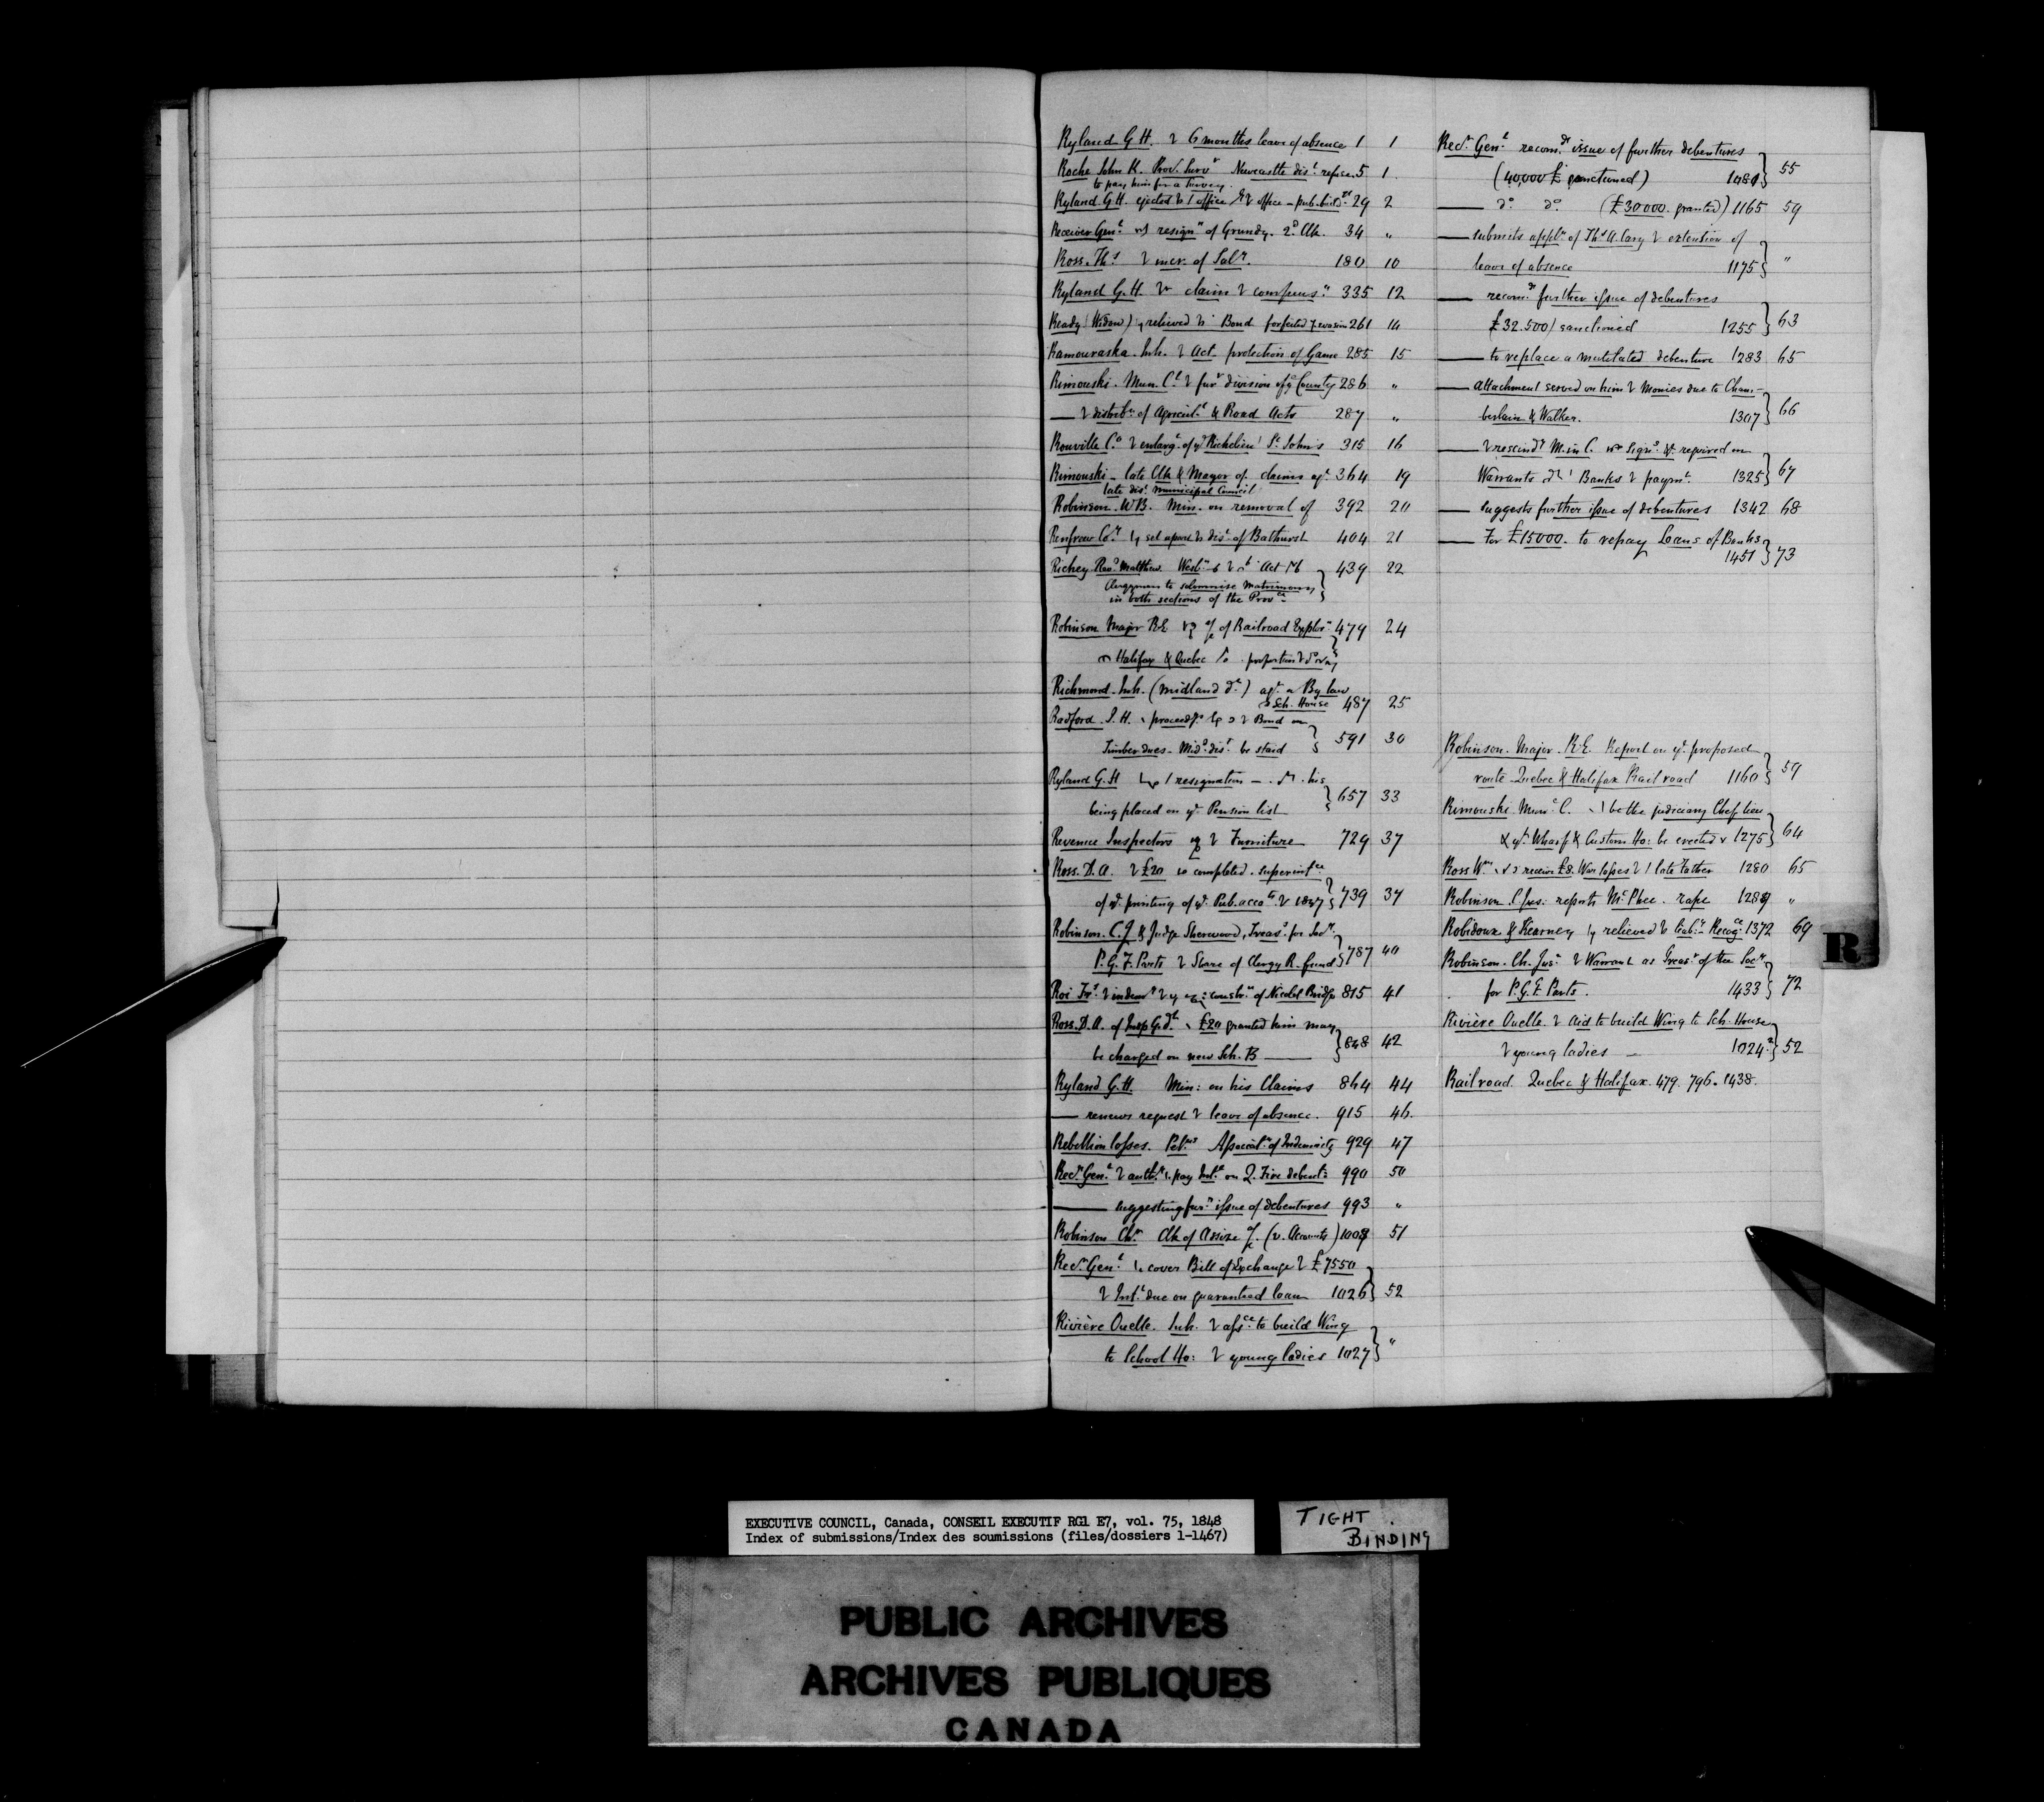 Ryland G H. 6 months leave of absence 1 1
Roche John K. Prov. Survr Newcastle dist. refuse 5 1
to pay him for a Survey.
Ryland G.H. ejected office office - pub. bldgs 29 2
Receiver Genl resign'n of Grundy. 2d Clk. 34 "
Ross. Ths incr. of Saly. 180 10
Ryland G.H. claim compens'n 335 12
Ready (Widow) relieved Bond forfeited evasion 261 14
Kamouraska. Inh. Act. protection of Game 285 15
Rimouski. Mun. Cl furr division of County 286 "
— distribn of Agricultl & Road Acts 287 "
Rouville Co enlargt of Richelieu St Johns 315 16
Rimouski - late Clk & Mayor of claims agt 364 19
late dist Municipal Council
Robinson. W B. Min. on removal of 392 20
Renfrew Coy set apart dist of Bathurst 404 21
Richey Revd Matthew. Wesln Act 439 22
Clergymen to solemnise Matrimony
in both sections of the Provce
Robinson Major R.E. of Railroad Explorn 479 24
Halifax & Quebec proportion
Richmond. Inh. (Midland dt) agt a By law
Sch. House 487 25
Radford. J. H. proceedgs Bond on
Timber dues - Midd dist be staid 591 30
Ryland G.H resignation his
being placed on ye Pension list 657 33
Revenue Inspectors Furniture 729 37
Ross. D. A. £20 completed superintce
of ye printing of ye Pub. accots 1847 739 37
Robinson. C.J & Judge Sherwood, Treasr for Socy
P.G.F. Parts Share of Clergy R. fund 787 40
Roi Frs indemy constrn of Nicolet Bridge 815 41
Ross. D. A. of Insp G. dt £20 granted him may
be charged on new Sch. B — 848 42
Ryland G.H. Min: on his Claims 864 44
— renews request leave of absence. 915 46.
Rebellion losses. Petns Associatn of Indemnity 929 47
Recr Genl authy pay Intt on Q. Fire debents 990 50
— suggesting furr issue of debentures 993 "
Robinson Chr Clk of Assize (v. Accounts) 1008 51
Recr Genl cover Bill of Exchange £7550
Intt due on guaranteed loan 1026 52
Rivière Ouelle. Inh. assce to build Wing
to School Ho: young ladies 1027 "
Recr Genl recomds issue of further debentures
(40,000 £ sanctioned) 1080 55
— do do (£30000. granted) 1165 59
— submits appln of Ths A. Cary extention of
leave of absence 1175 "
— recomds further issue of debentures
£32.500/ sanctioned 1255 63
— to replace a mutilated debenture 1283 65
— attachment served on him Monies due to Cham-
berlain & Walker. 1307 66
— rescindg M. in C. Signs required on
Warrants Banks paymt 1325 67
— suggests further issue of debentures 1342 68
— For £15000. to repay Loans of Banks
1451 73
Robinson. Major. R.E. Report on ye proposed
route Quebec & Halifax Railroad 1160 59
Rimouski Munl C. be the judiciary Chef lieu
& yt Wharf & Custom Ho: be erected 1275 64
Ross Wm receive £8. War losses late Father 1280 65
Robinson. C. Jus: reports McPhee. rape 1289 "
Robidoux & Kearney relieved liaby Recogce 1372 69
Robinson. Ch. Jus: Warrant as Treasr of the Socy
for P.G.F. Parts. 1433 72
Rivière Ouelle. Aid to build Wing to Sch. House
young ladies — 1024 2 52
Railroad Quebec & Halifax. 479. 796. 1438.
R
EXECUTIVE COUNCIL, Canada, CONSEIL EXECUTIF RG1 E7, vol. 75, 1848
Index of submissions/Index des soumissions (files/dossiers 1-1467)
TIGHT
BINDING
PUBLIC ARCHIVES
ARCHIVES PUBLIQUES
CANADA